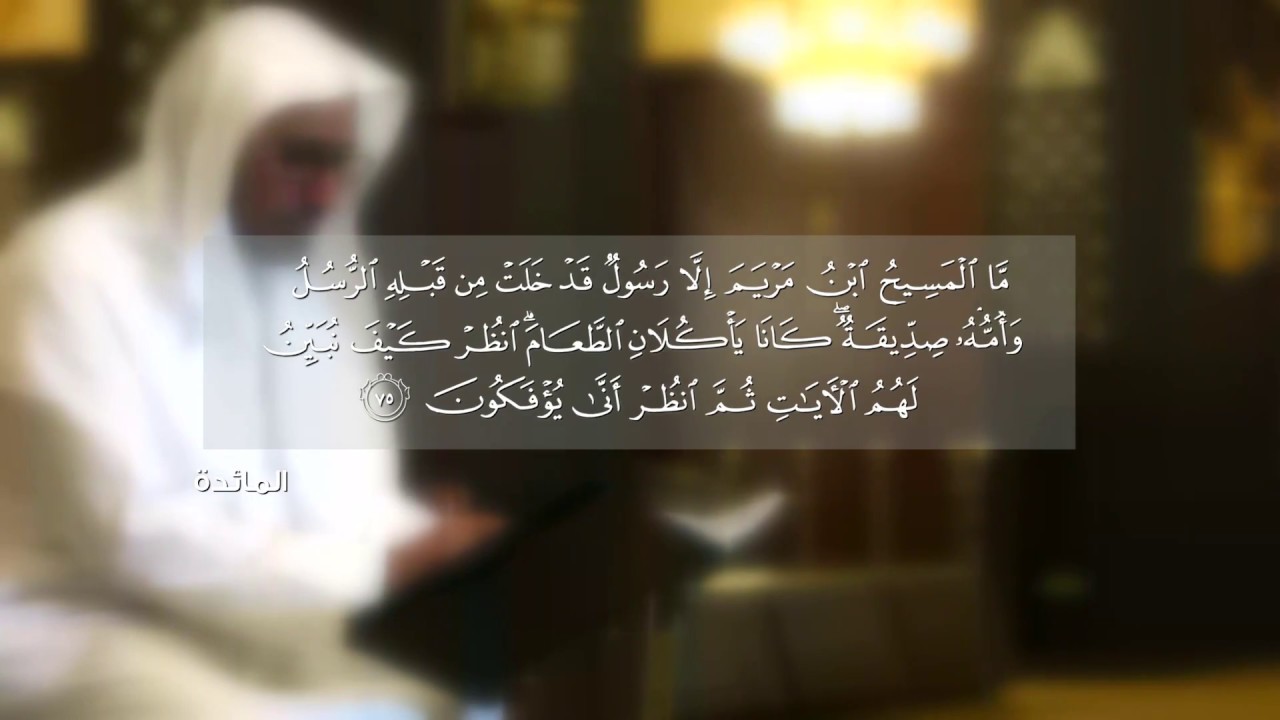 مَّا ٱلْمَسِيحُ ٱبْنُ مَرْيَمَ إِلَّا رَسُولٌ قَدْ خَلَتْ مِن قَبْلِهِ ٱلرُّسُلُ
وَأُمُّهُۥ صِدِّيقَةٌ ۖ كَانَا يَأْكُلَانِ ٱلطَّعَامَ ۗ ٱنظُرْ كَيْفَ نُبَيِّنُ
لَهُمُ ٱلْـَٔايَـٰتِ ثُمَّ ٱنظُرْ أَنَّىٰ يُؤْفَكُونَ ٧٥
المائدة